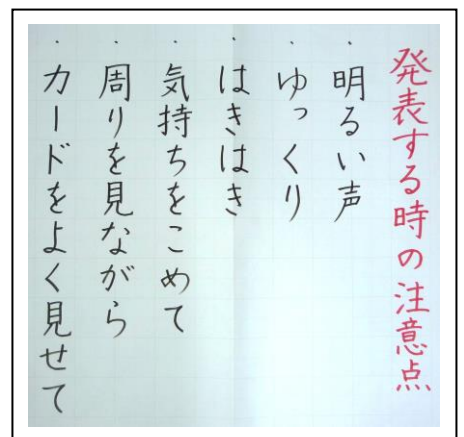 発表する時の注意点
・明るい声
・ゆっくり
・はきはき
・気持ちをこめて
・周りを見ながら
・カードをよく見せて